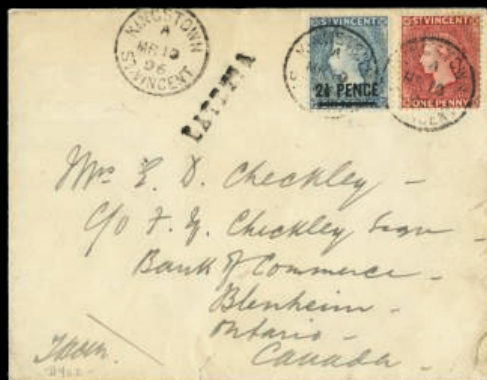 KINGSTOWN
A
MR 10
96
ST. VINCENT
ST VINCENT
2½ PENCE
ST VINCENT
ONE PENNY
Mrs E. D. Checkley -
c/o F. G. Checkley Esqr
Bank of Commerce -
Blenheim -
Ontario -
Canada -